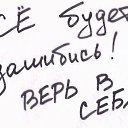 ВСЁ будет
зашибись!
ВЕРЬ В
СЕБЯ